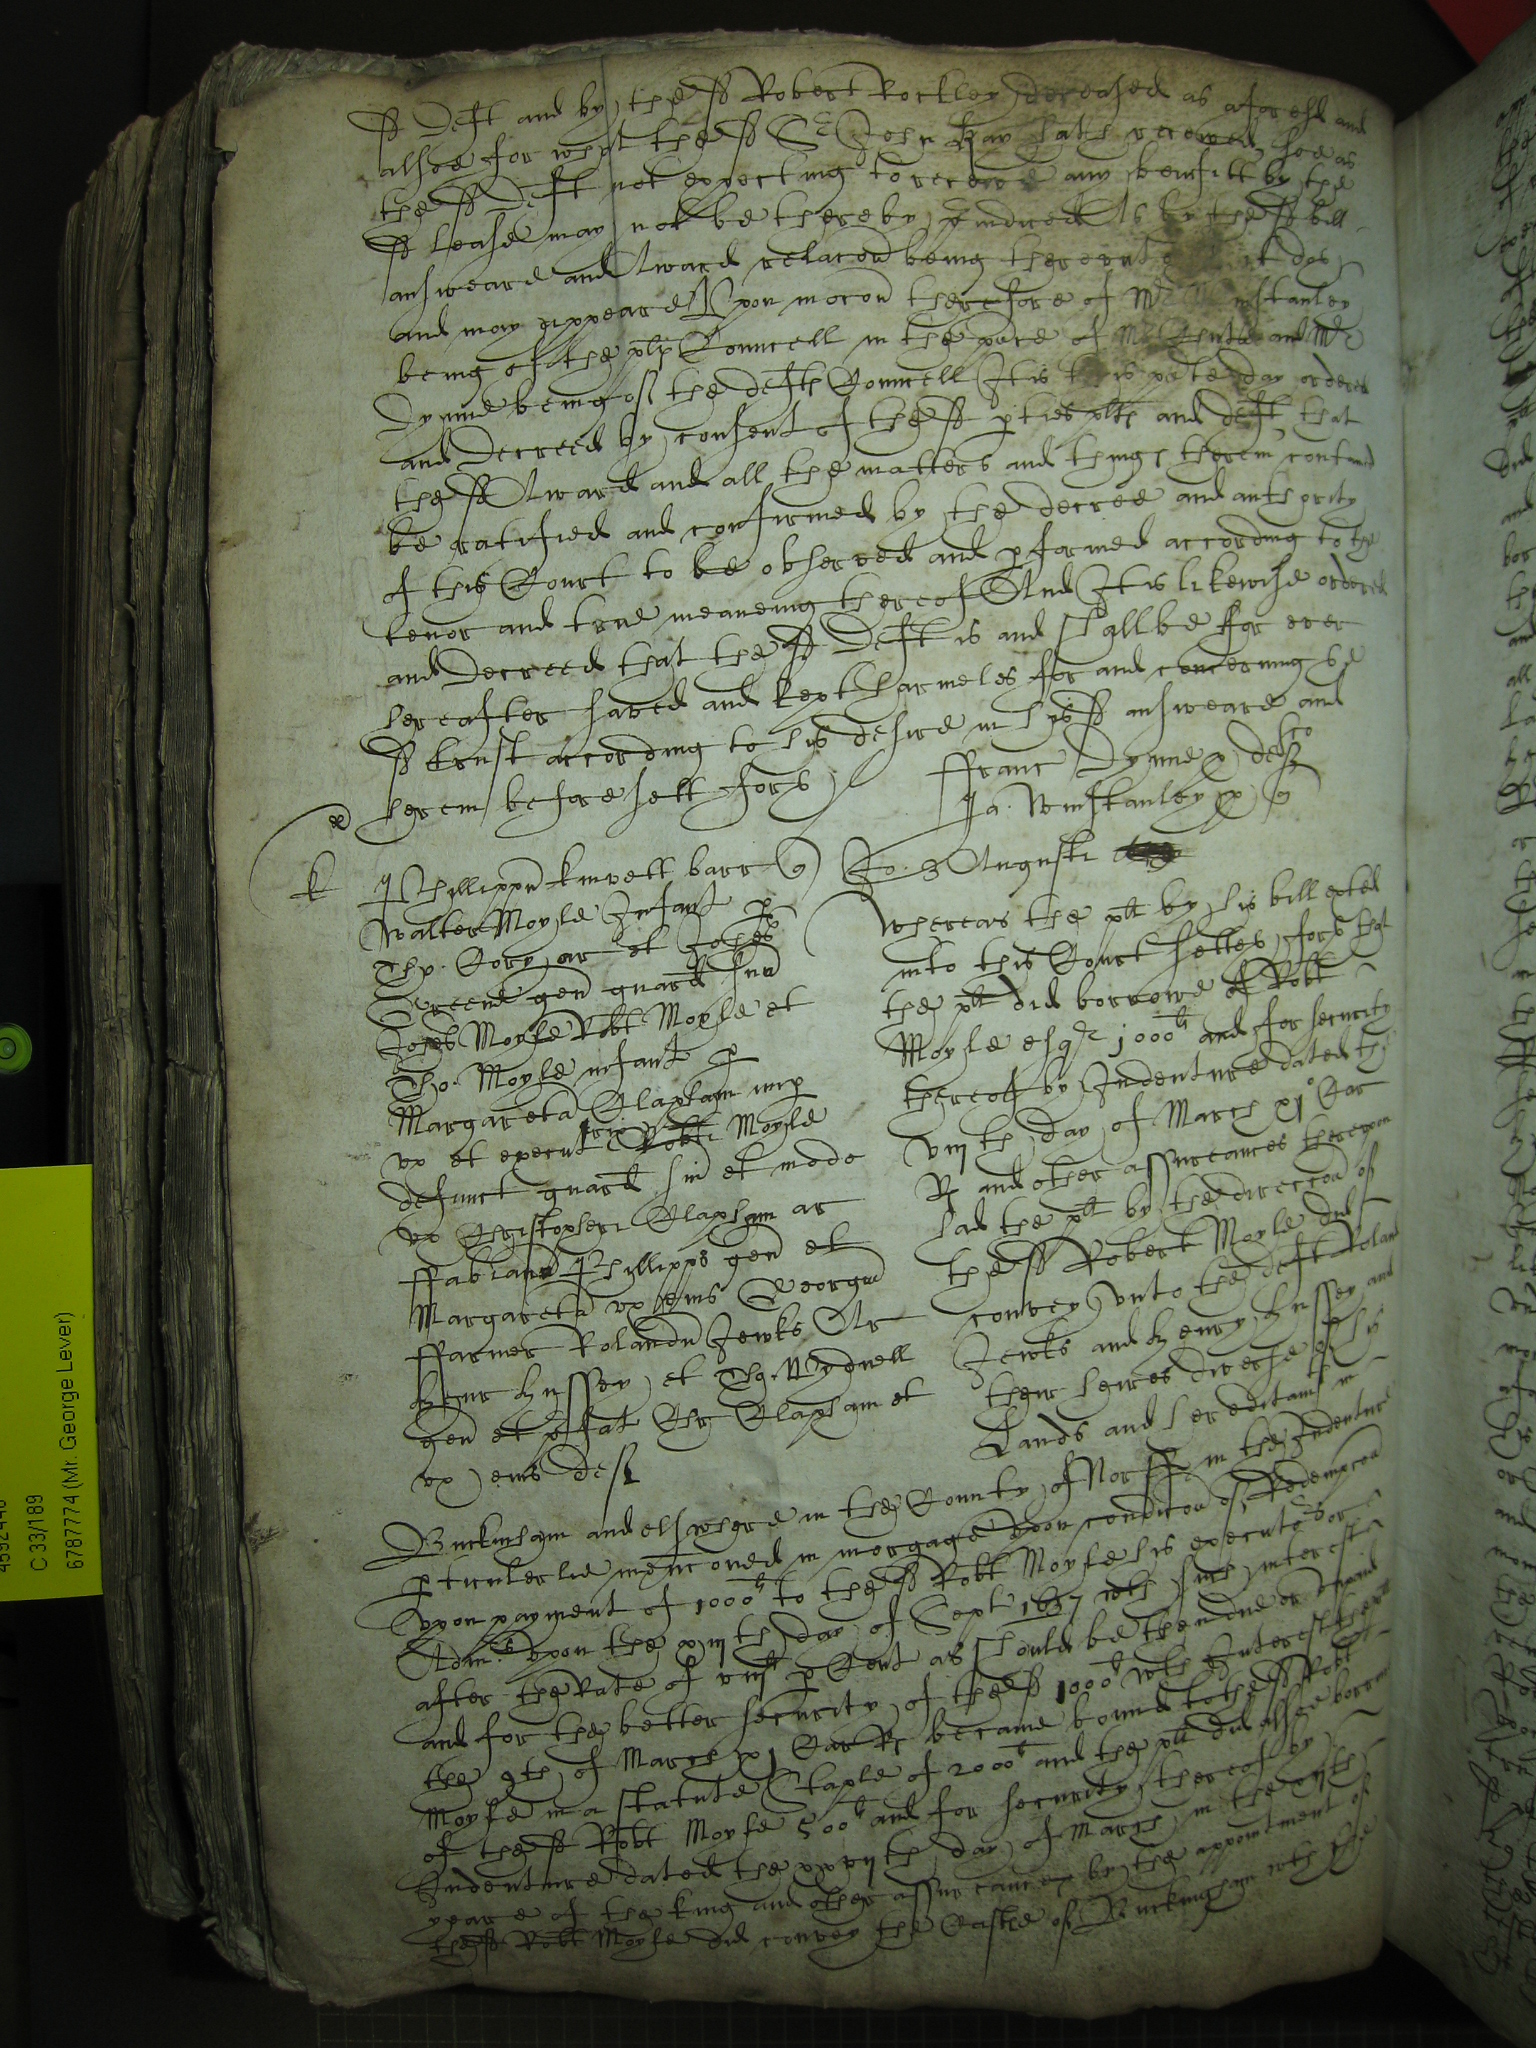 sd Deft and by the sd Robert Rockley deceased as aforesd and
alsoe for what the sd Sr John Kay hath receved hee as
the sd Deft not expecting to receive any benifitt by the
sd lease may not be thereby As by the sd bill
answeare and Award relacon being thereunto it doth
and may appeare Upon mocon therefore of Mr Winstanley
being of the plts Councell in the pnce of Mr and Mr
Dynne being of the defts Councell It is this pnte day ordered
and Decreed by consent of the sd pties plts and deft that
the sd Award and all the matters and things therein conteined
be ratified and confirmed by the decree and authority
of this Court to be observed and pformed according to the
tenor and true meaneing thereof And It is likewise ordered
and Decreed that the sd Deft is and shallbe for ever
hereafter saved and kept harmeles for and concerning the
sd trust according to his desire in his sd answeare and
herein before sett forth
Franc Dynne p def
Ja. Winstanley p q
k Phillippu knivett barr q Jo. 3 Augusti
Walter Moyle Infant p
Tho. Cory ar et Johes
Greene gen guard suu
Johes Moyle Robt Moyle et
Tho. Moyle infant p
Margareta Clapham nup
ux et execut Robti Moyle
trix
defunct guard sui et modo
ux Christopheri Clapham ar
Fabianu Phillipps gen et
Margareta ux eius Georgiu
Farmer Rolandu Jewks Ar
Henr Hussey et Tho. Wydnell
gen et pfat Chr Clapham et
ux eius def
Whereas the plt by his bill exted
into this Court setteth forth that
the plt did borrowe of Robt
Moyle esqr 1000li and for security
thereof by Indenture dated the
viijth day of March xj Car
Rs and other assurances thereupon
had the plt by the direccon of
the sd Robert Moyle did
convey unto the deft Roland
Jewks and Henry Hussey and
their heires diverse of his
Lands and hereditamts in
Buckinham and elswhere in the County of Norff in the Indenture
pticulerlie mencioned in morgage upon condicon of Redempcon
Upon payment of 1000li to the sd Robt Moyle his executors or
Admrs upon the xijth day of Sept 1637 with such interest
after the Rate of viijli p Cent as should be then due or unpaid
and for the better security of the sd 1000li with Interest the plt
the 9th of March xj Car Rs became bound to the sd Robt
Moyle in a statute Staple of 2000li and the plt did alsoe borrow
of the sd Robt Moyle 500li and for security thereof by
Indenture dated the xxvijth day of March in the xijth
yeare of the king and other assurances by the appointment of
the sd Robt Moyle did convey the Castle of Buckingham with the
C 33/189
6787774 (Mr. George Lever)